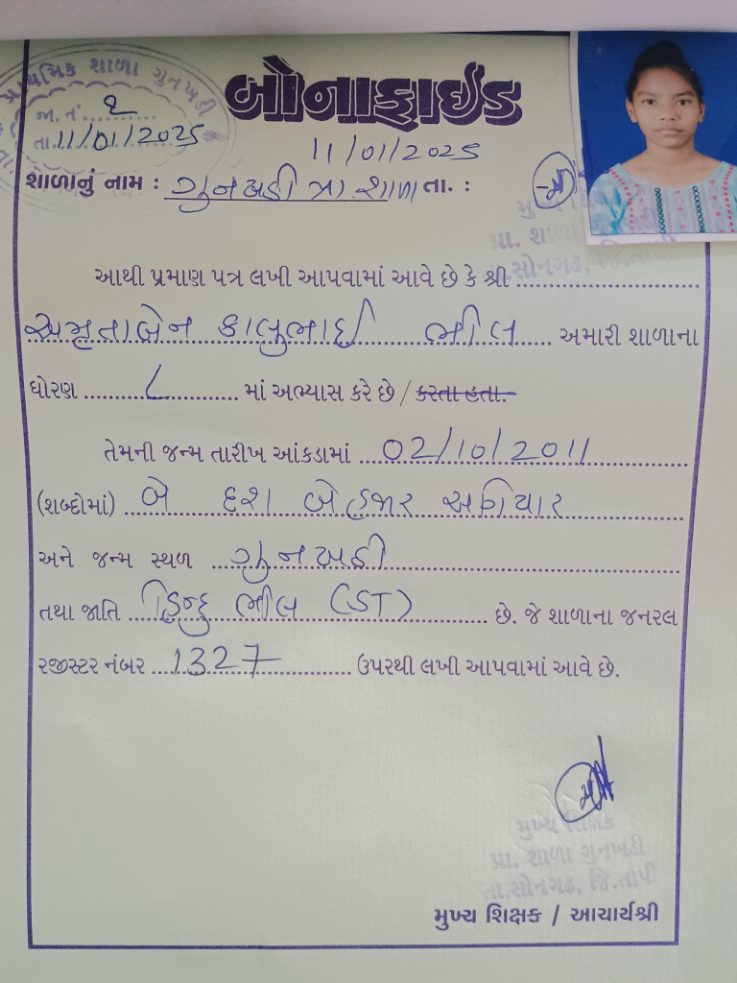 પ્રાથમિક શાળા ગુનખડી
જા. નં. ૨
તા. 11/01/2025
બોનાફાઈડ
11/01/2025
શાળાનું નામ : ગુનખડી પ્રા. શાળા તા. :
પ્રા. શાળા
સોનગઢ, જિ.તાપી
આથી પ્રમાણ પત્ર લખી આપવામાં આવે છે કે શ્રી
અમૃતાબેન કાલુભાઈ ભીલ અમારી શાળાના
ધોરણ ૮ માં અભ્યાસ કરે છે / કરતા હતા.
તેમની જન્મ તારીખ આંકડામાં 02/10/2011
(શબ્દોમાં) બે દશ બેહજાર અગિયાર
અને જન્મ સ્થળ ગુનખડી
તથા જાતિ હિન્દુ ભીલ (ST) છે. જે શાળાના જનરલ
રજીસ્ટર નંબર 1327 ઉપરથી લખી આપવામાં આવે છે.
મુખ્ય શિક્ષક
પ્રા. શાળા ગુનખડી
તા.સોનગઢ, જિ.તાપી
મુખ્ય શિક્ષક / આચાર્યશ્રી